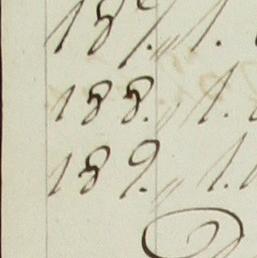 187. „ 1.
188. „ 1.
189. „ 1.1